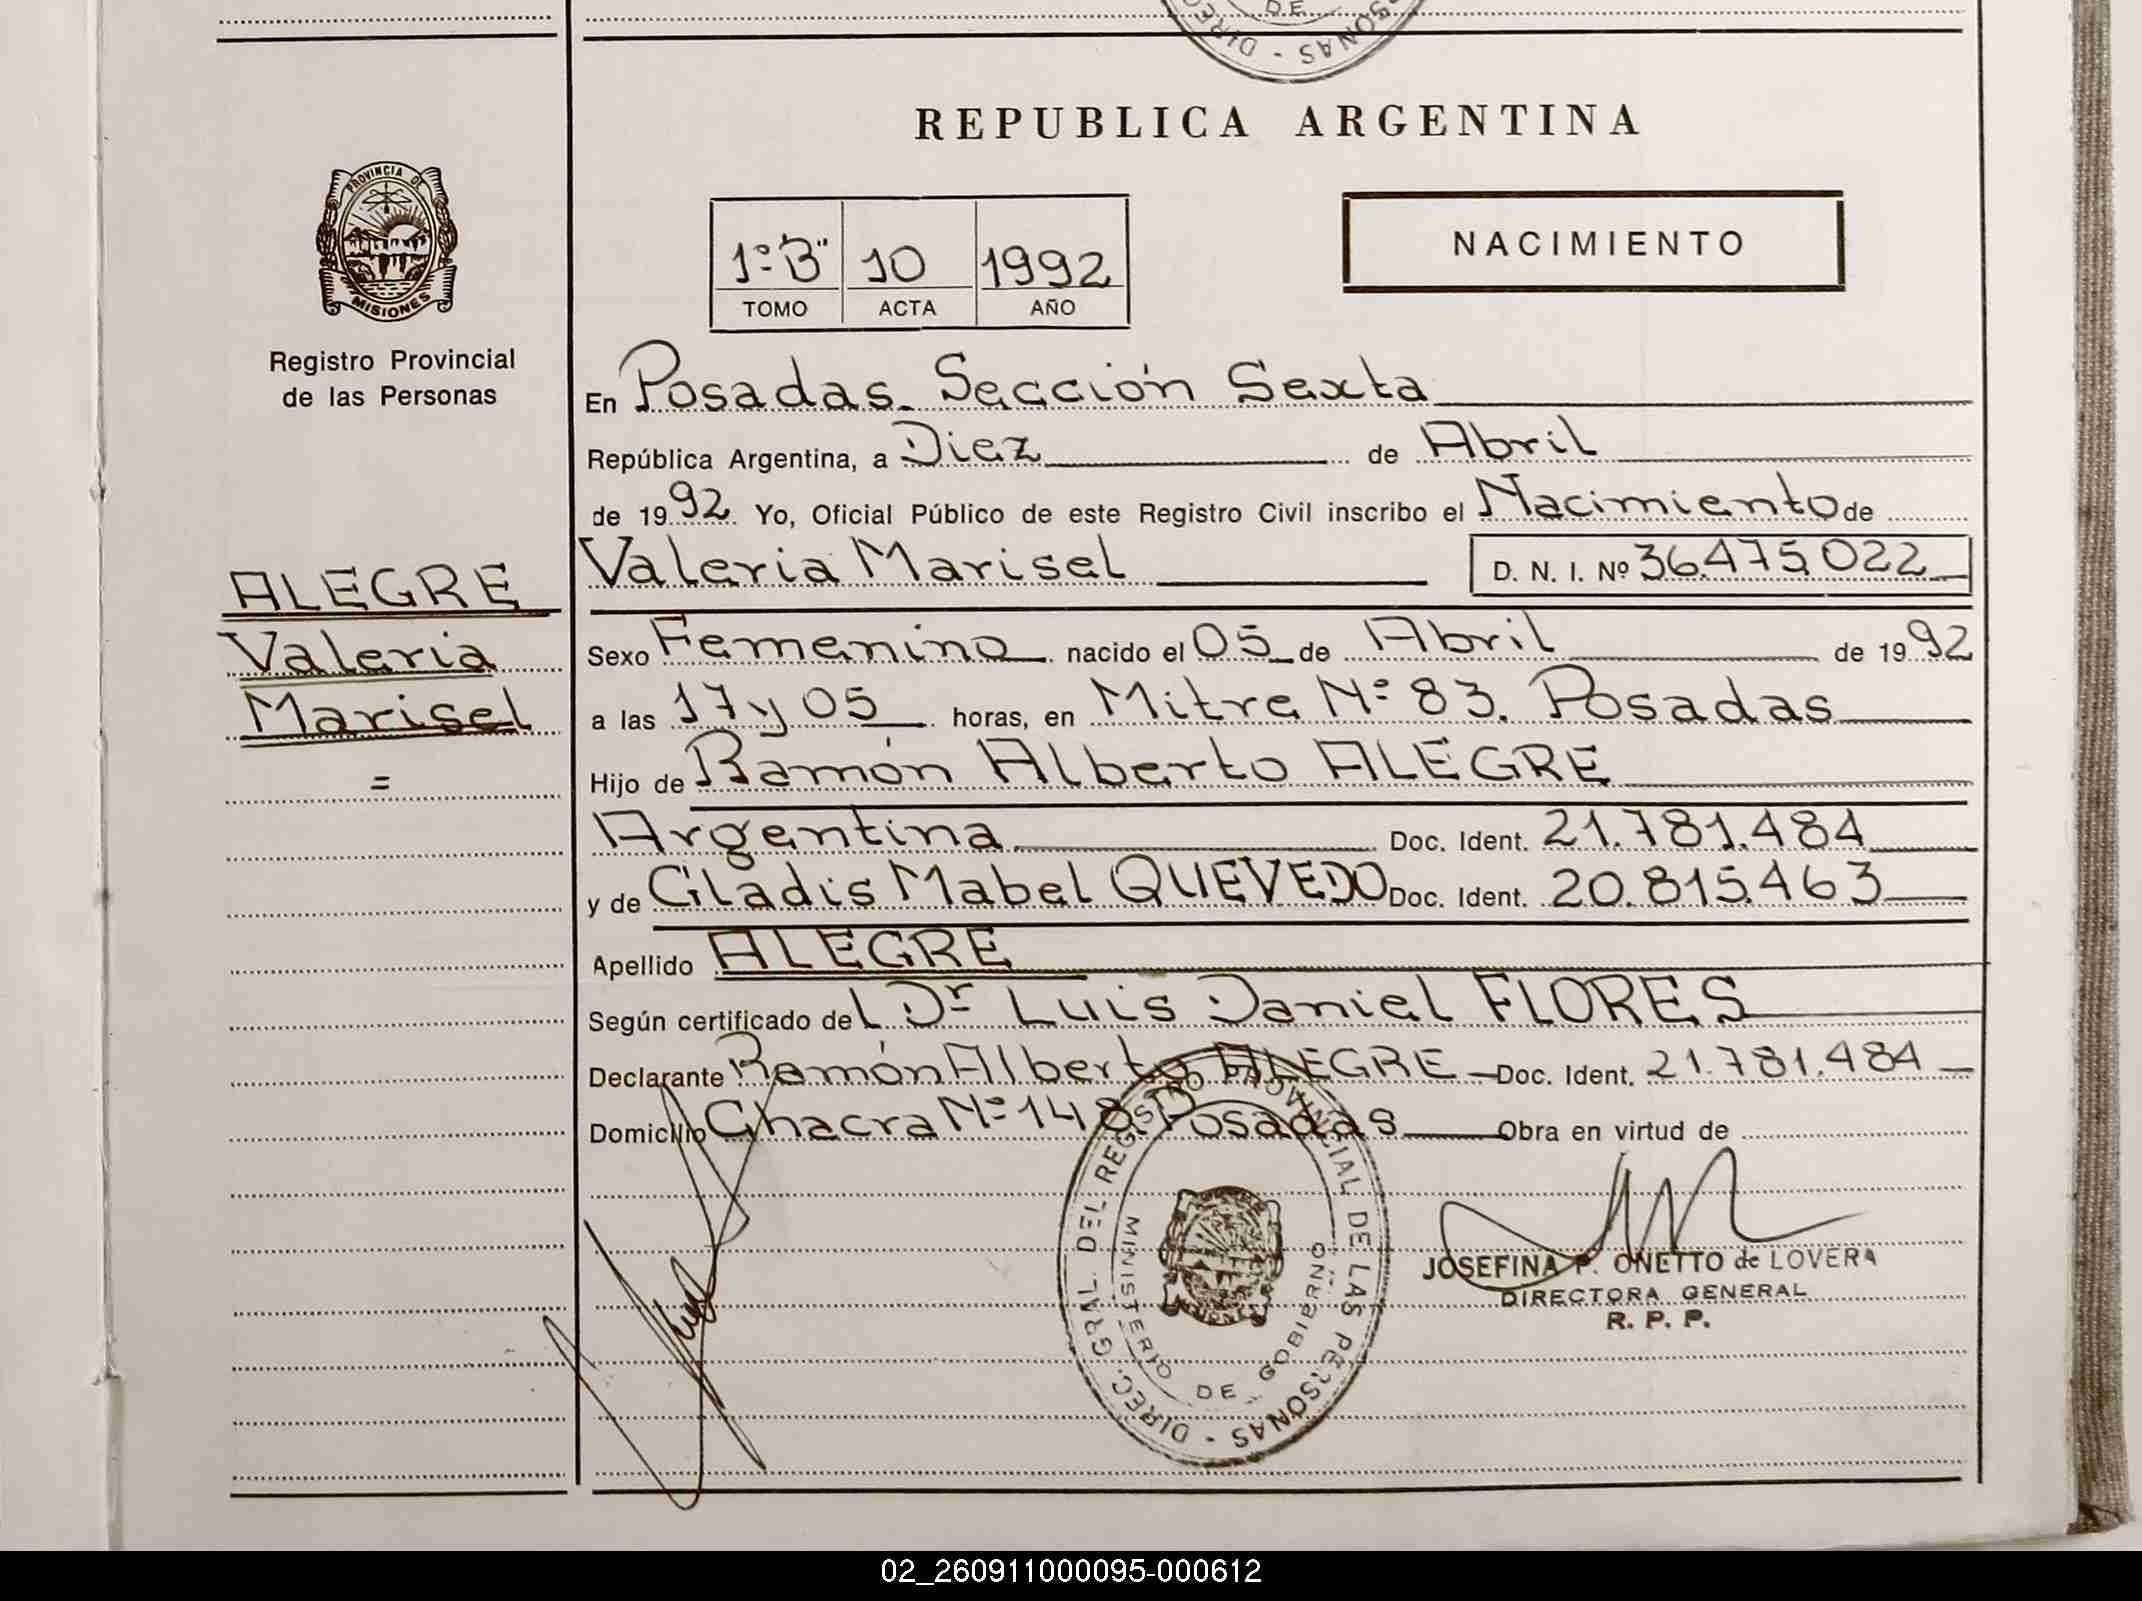 DE
DIREC
SONAS
REPUBLICA ARGENTINA
PROVINCIA DE
MISIONES
Registro Provincial
de las Personas
1º "B" 10 1992
TOMO ACTA AÑO
NACIMIENTO
En Posadas. Sección Sexta
República Argentina, a Diez de Abril
de 1992. Yo, Oficial Público de este Registro Civil inscribo el Nacimiento de
Valeria Marisel D. N. I. Nº 36.475.022
ALEGRE
Valeria
Marisel
=
Sexo Femenino nacido el 05 de Abril de 1992
a las 17 y 05 horas, en Mitre Nº 83. Posadas
Hijo de Ramón Alberto ALEGRE
Argentina Doc. Ident. 21.781.484
y de Gladis Mabel QUEVEDO Doc. Ident. 20.815.463
Apellido ALEGRE
Según certificado del Dr Luis Daniel FLORES
Declarante Ramón Alberto ALEGRE Doc. Ident. 21.781.484
Domicilio Chacra Nº 148 Posadas Obra en virtud de
DIREC. GRAL. DEL REGISTRO PROVINCIAL DE LAS PERSONAS -
MINISTERIO DE GOBIERNO
JOSEFINA P. ONETTO de LOVERA
DIRECTORA GENERAL
R. P. P.
02_260911000095-000612